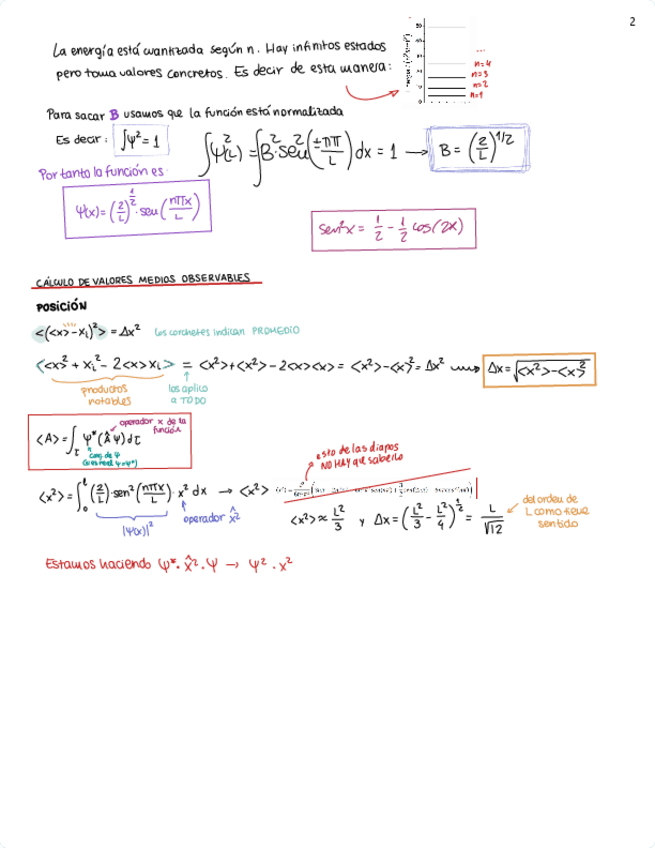 2
La energía está cuantizada según n. Hay infinitos estados
pero toma valores concretos. Es decir de esta manera:
...
n=4
n=3
n=2
n=1
Para sacar B usamos que la función está normalizada
Es decir: ∫ψ²=1
∫ψ²(L) = ∫B²·sen²(±nπ/L)dx = 1 → B = (2/L)^1/2
Por tanto la función es
ψ(x)=(2/L)^1/2·sen(nπx/L)
sen²x = 1/2 - 1/2 cos(2x)
CÁLCULO DE VALORES MEDIOS OBSERVABLES
POSICIÓN
<(<x>-xᵢ)²> = Δx² los corchetes indican PROMEDIO
<<x>²+xᵢ²-2<x>xᵢ> = <x²>+<x²>-2<x><x> = <x²>-<x>² = Δx² → Δx=√<x²>-<x>²
productos
notables
los aplico
a TODO
operador x de la
función
<A>=∫τ ψ*(Âψ)dτ
conj. de ψ
(si es real ψ=ψ*)
esto de las diapos
NO HAY que saberlo
<x²>=∫₀ᴸ(2/L)·sen²(nπx/L)·x² dx → <x²>
|ψ(x)|²
operador x̂²
<x²>≈L²/3 y Δx=(L²/3-L²/4)^1/2 = L/√12
del orden de
L como tiene
sentido
Estamos haciendo ψ*·x̂²·ψ → ψ²·x²